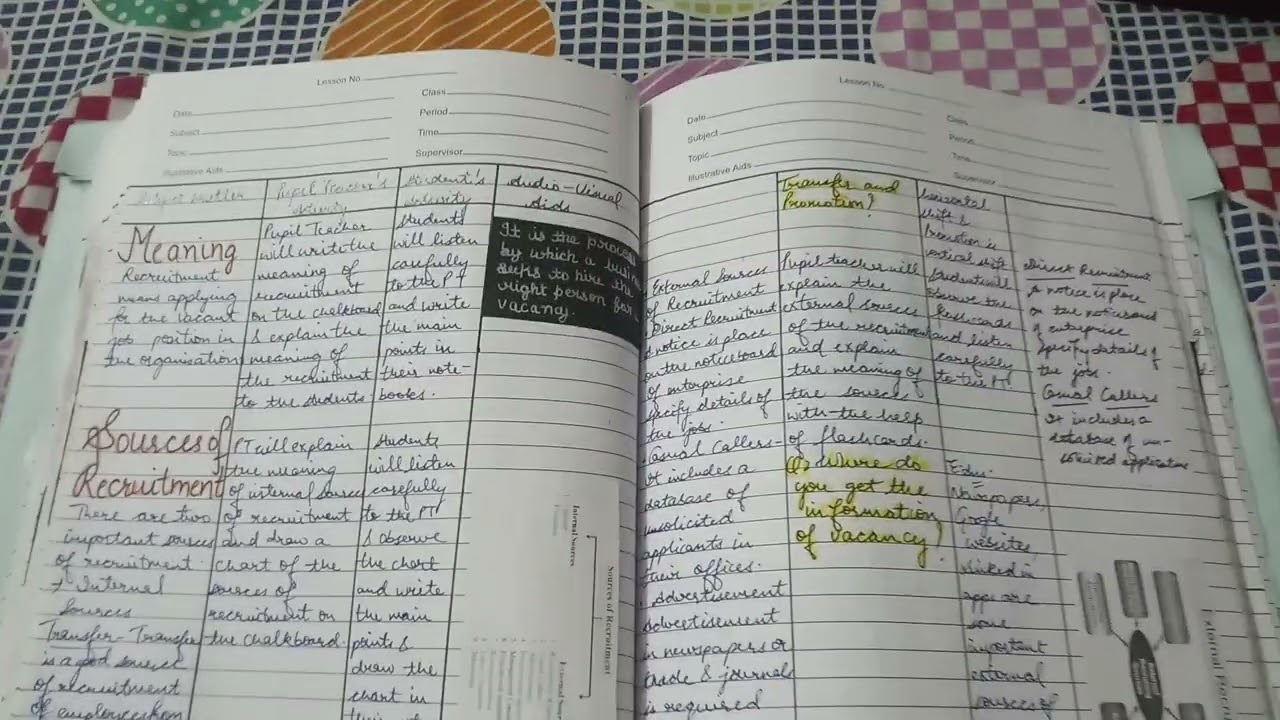 Lesson No.
Date
Subject
Topic
Illustrative Aids
Class
Period
Time
Supervisor
Subject matter
Pupil Teacher's
Activity
Student's
Activity
Audio-Visual
Aids
Meaning
Recruitment
means applying
for the vacant
job position in
the organisation
Pupil Teacher
will write the
meaning of
recruitment
on the chalkboard
& explain the
meaning of
the recruitment
to the students
Students
will listen
carefully
to the PT
and write
the main
points in
their note-
books.
It is the process
by which a
seeks to hire the
right person for
vacancy.
Sources of
Recruitment
There are two
important sources
of recruitment
→ Internal
Sources
Transfer- Transfer
is a good source
of recruitment
of employees from
PT will explain
the meaning
of internal sources
of recruitment
and draw a
chart of the
sources of
recruitment on
the chalkboard.
Students
will listen
carefully
to the PT
& observe
the chart
and write
the main
points &
draw the
chart in
Sources of Recruitment
Internal Sources
External
Lesson No.
Date
Subject
Topic
Illustrative Aids
Class
Period
Time
Supervisor
External Sources
of Recruitment
Direct Recruitment
A notice is place
on the noticeboard
of enterprise
specify details of
the job.
. Casual Callers-
It includes a
database of
unsolicited
applicants in
their offices.
. Advertisement
Advertisement
in newspapers or
trade & journals
is required
Transfer and
Promotion?
Pupil teacher will
explain the
external sources
of the recruitment
and explain
the meaning of
the sources
with the help
of flashcards.
Q) Where do
you get the
information
of vacancy?
Horizontal
shift &
Promotion is
vertical shift
Students will
observe the
flashcards
and listen
carefully
to the PT
Newspapers,
Google
websites,
Linkedin
apps are
some
important
external
sources of
Direct Recruitment
A notice is place
on the noticeboard
of enterprise
specify details of
the jobs.
Casual Callers
It includes a
database of un-
solicited applicators